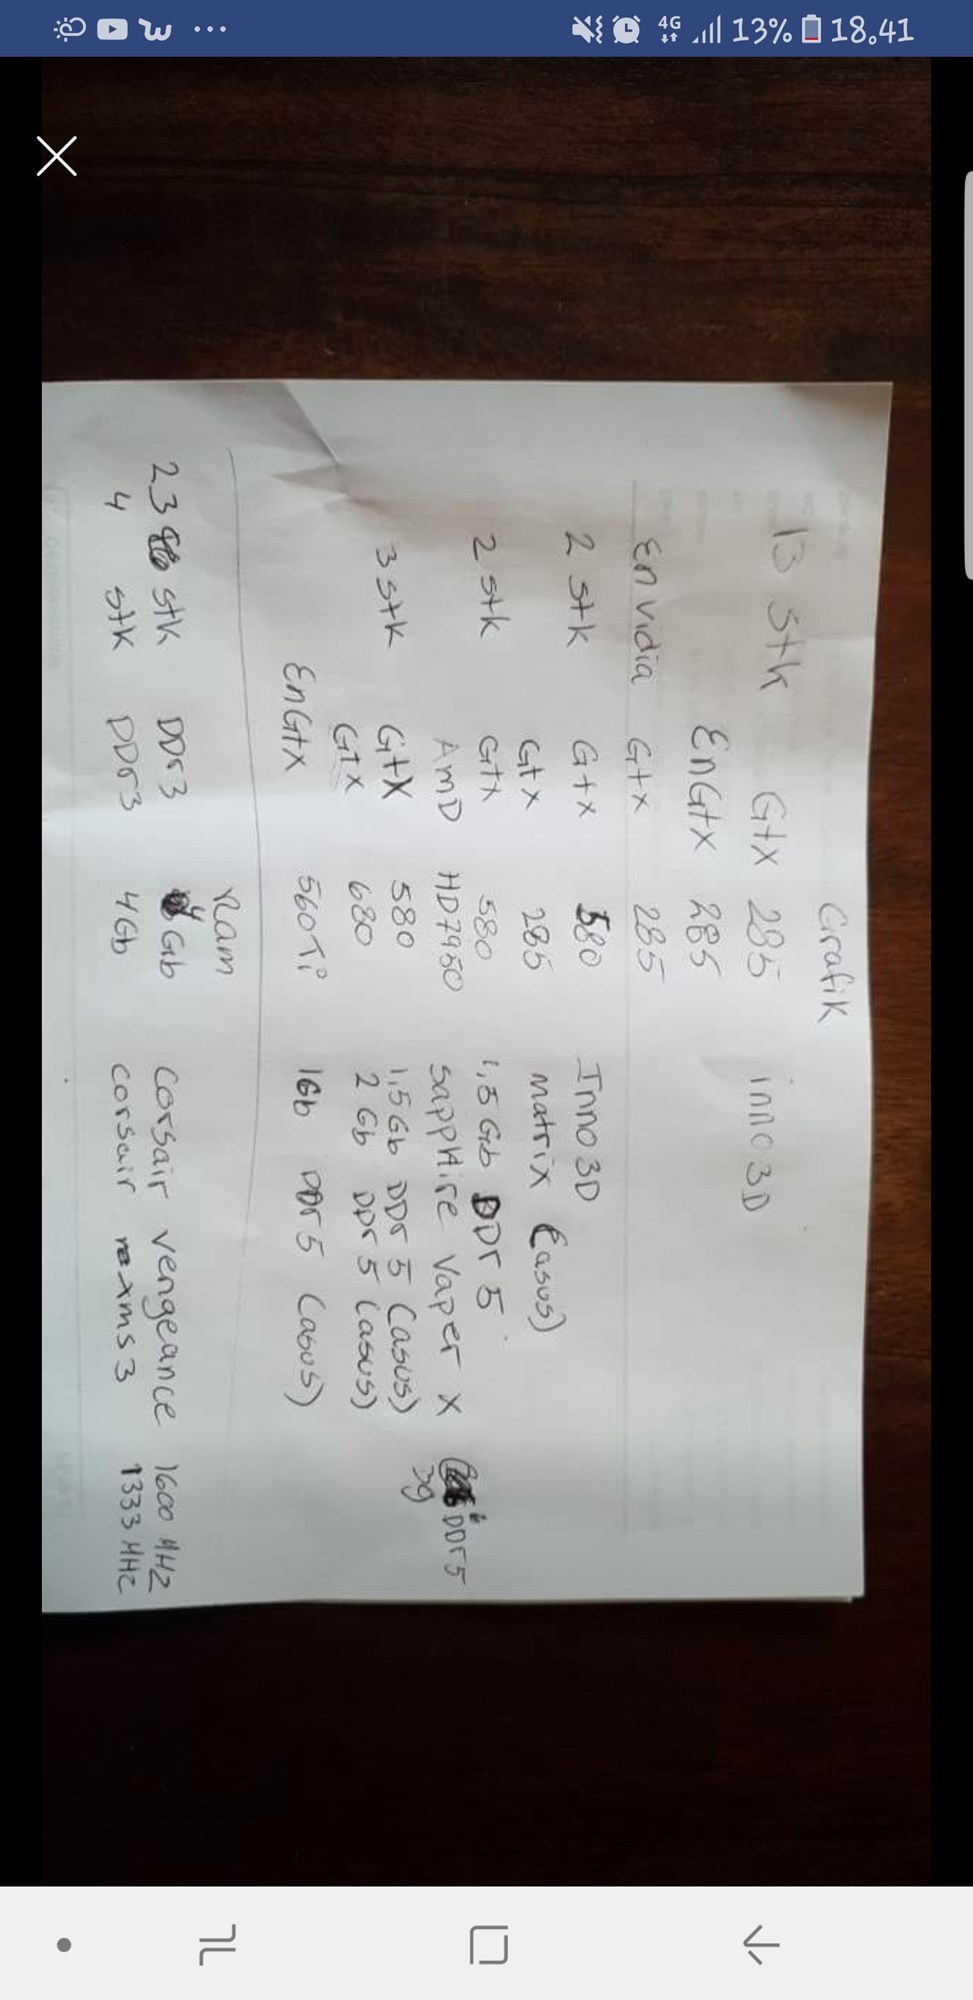 13% 18.41
Grafik
13 stk Gtx 285 inno3D
EnGtx 285
Envidia Gtx 285
2 stk Gtx 580 Inno3D
Gtx 285 Matrix (asus)
2 stk Gtx 580 1,5 Gb DDr 5
AMD HD7950 SappHire Vaper X 3g DDr5
3 stk Gtx 580 1,5Gb DDr 5 (asus)
Gtx 680 2 Gb DDr 5 (asus)
EnGtx 560Ti 1Gb DDr 5 (asus)
Ram
23 stk DDr3 4 Gb Corsair vengeance 1600 MHz
4 stk DDr3 4Gb Corsair xms3 1333 MHz